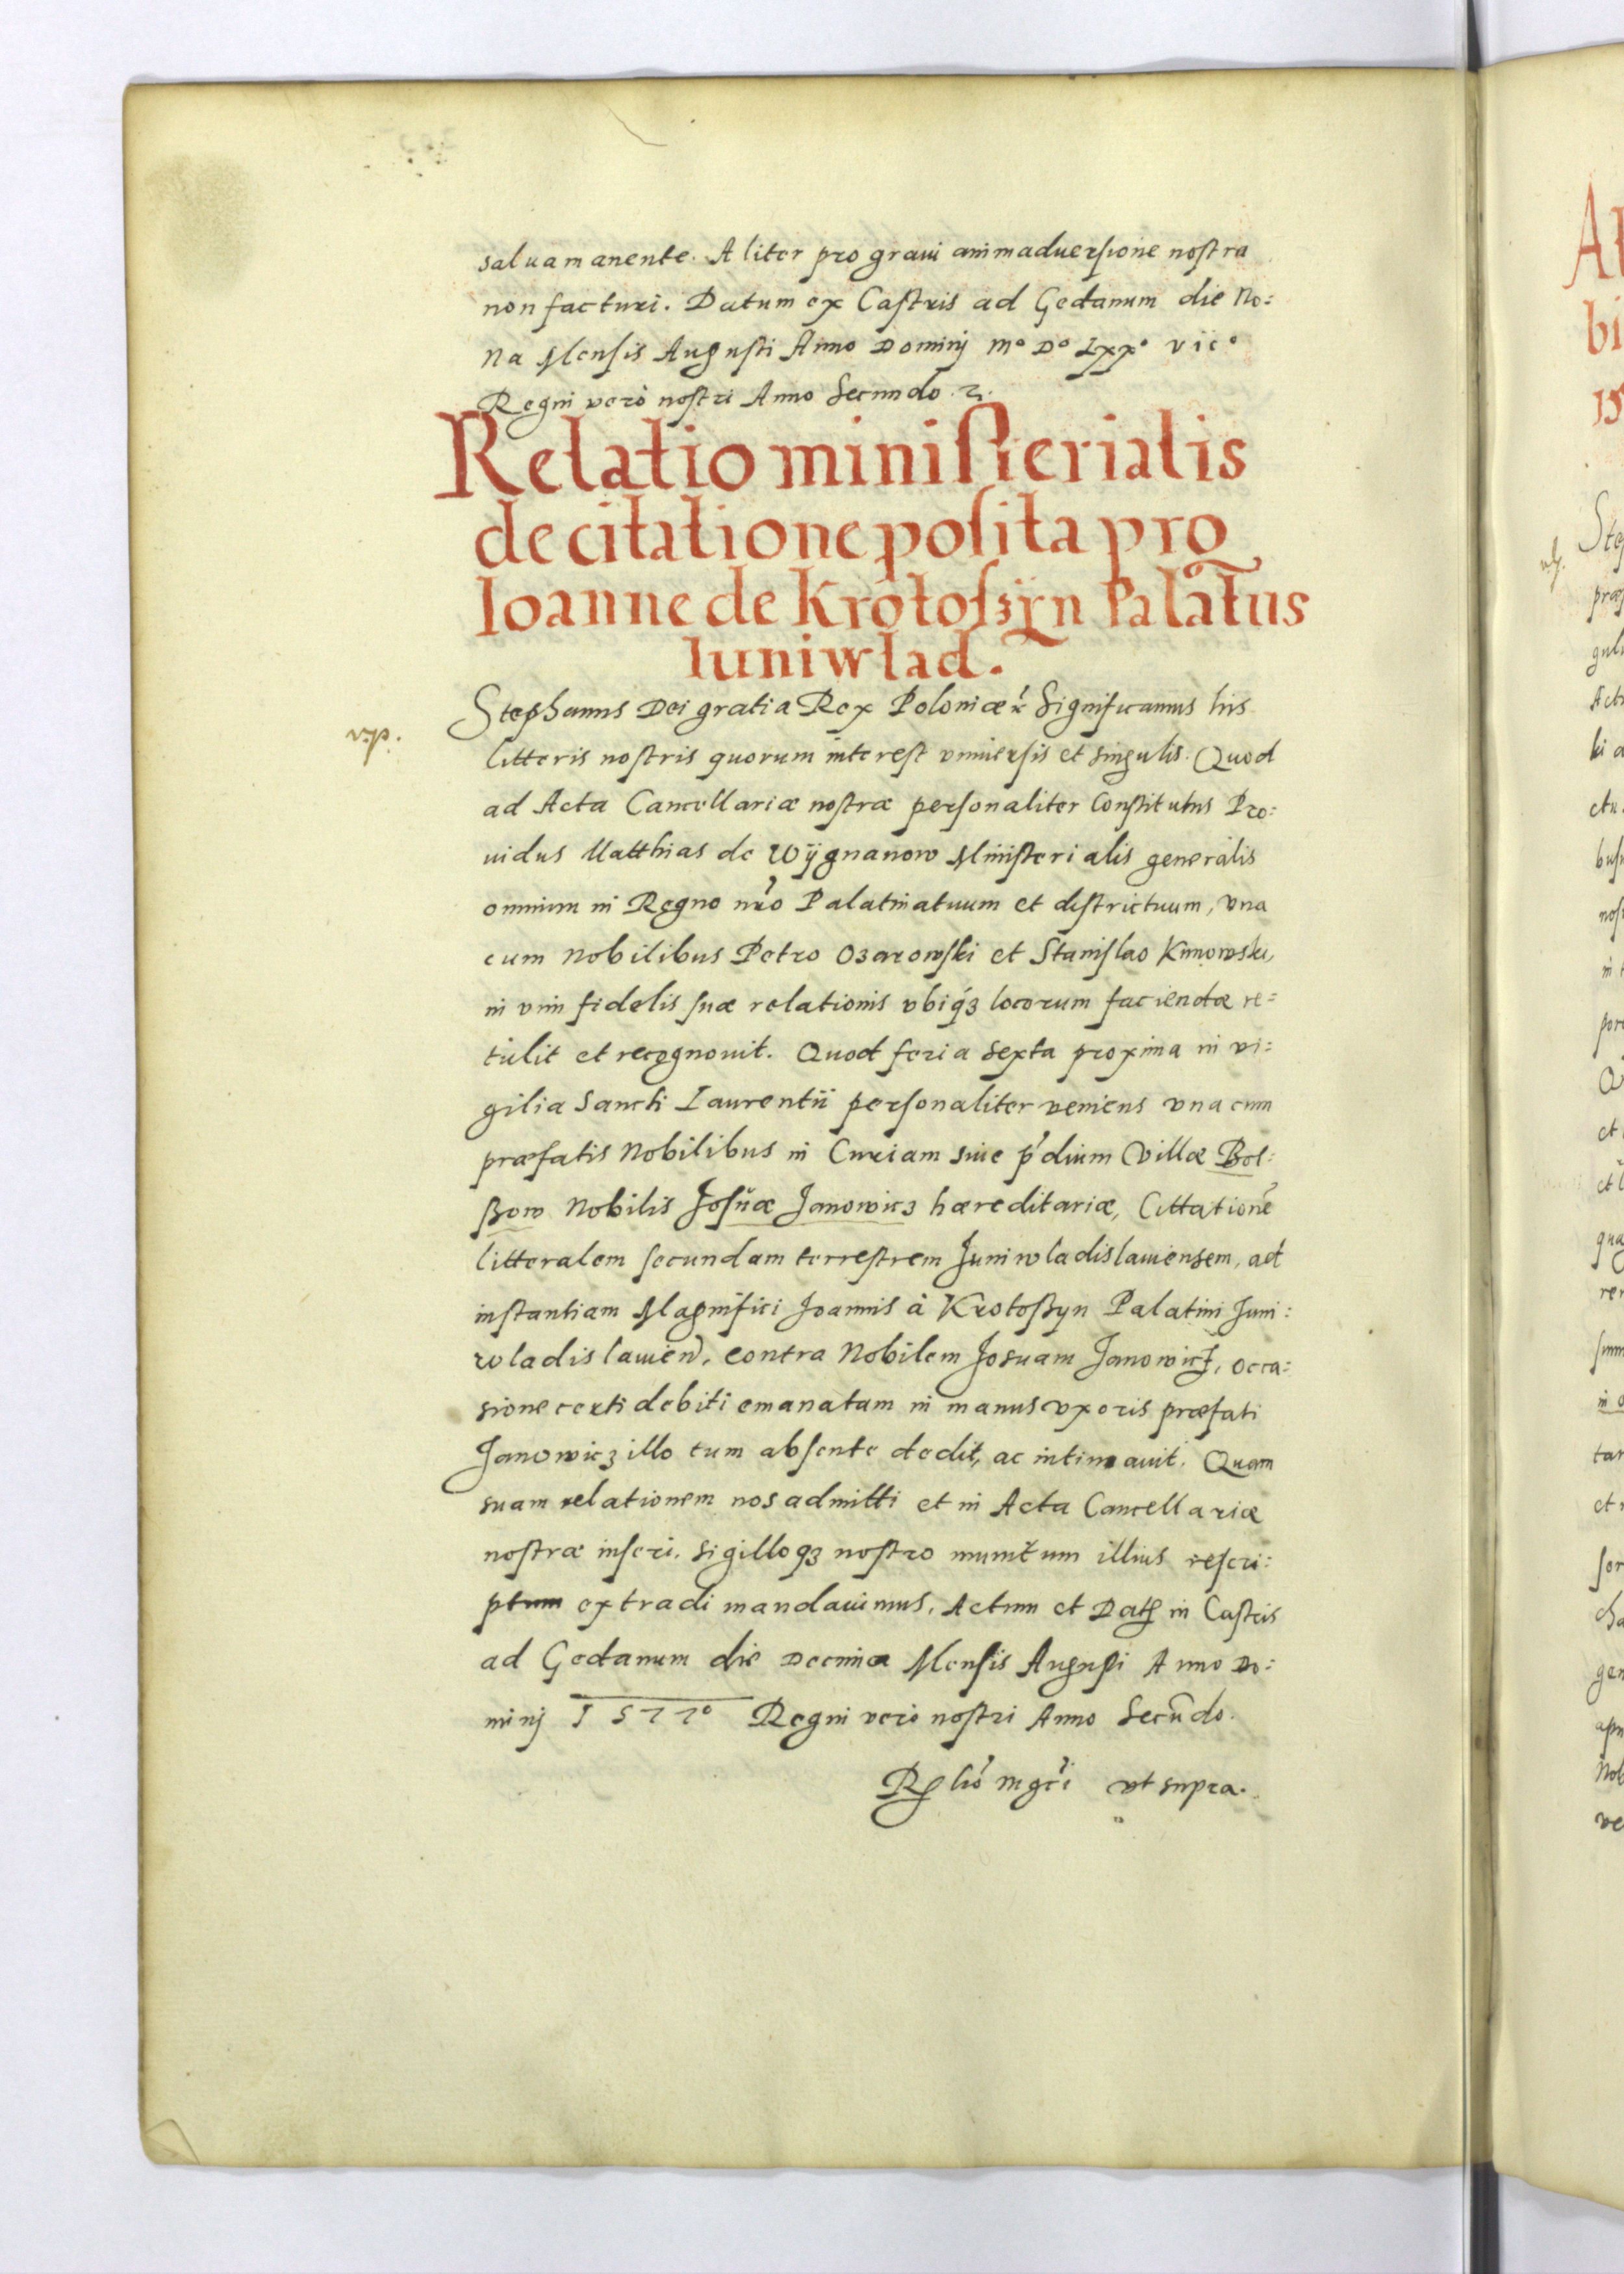 salua manente. Aliter pro graui animaduersione nostra
non facturi. Datum ex Castris ad Gedanum die No:
na Mensis Augusti Anno Dominj Mº Dº Lxxº viiº
Regni verò nostri Anno Secundo.
Relatio ministerialis
de citatione posita pro
Ioanne de Krotoszÿn Palatus
Iuniwlad.
Stephanus Dei gratia Rex Poloniæ Significamus his
litteris nostris quorum interest vniuersis et singulis. Quod
ad Acta Cancellariæ nostræ personaliter Constitutus Pro:
uidus Matthias de Wÿgnanow Ministerialis generalis
omnium in Regno nro Palatinatuum et districtuum, vna
cum Nobilibus Petro Ozarowski et Stanislao Kunowski,
in vim fidelis suæ relationis vbiqȝ locorum faciendæ re=
tulit et recognouit. Quod feria sexta proxima in vi:
gilia Sancti Laurentii personaliter veniens vna cum
præfatis Nobilibus in Curiam siue p̃dium Villæ Bol:
ßow Nobilis Josuæ Janowicz hæreditariæ, Cittationẽ
litteralem secundam terrestrem Juniwladislauiensem, ad
instantiam Magnifici Joannis à Krotoßyn Palatini Juni:
wladislauien, contra Nobilem Josuam Janowicz, occa:
sione certi debiti emanatam in manus vxoris præfati
Janowicz illo tum absente dedit, ac intimauit. Quam
suam relationem nos admitti et in Acta Cancellariæ
nostræ inseri, sigilloqȝ nostro munitum illius rescri:
ptum extradi mandauimus. Actum et Dat in Castris
ad Gedanum die Decima Mensis Augusti Anno Do:
minj 1577º Regni verò nostri Anno Secũdo.
Rlio mgci vt supra.